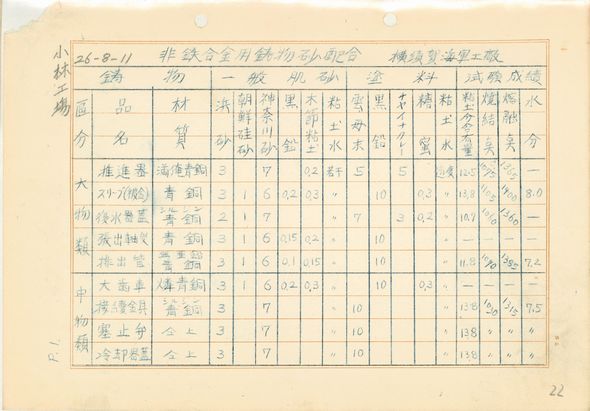 小林工場
26-8-11 非鉄合金用鋳物砂配合 横須賀海軍工廠
鋳物 一般肌砂 塗料 試験成績
区分 品名 材質 浜砂 朝鮮硅砂 神奈川砂 黒鉛 木節粘土 粘土水 雲母末 黒鉛 糖蜜 粘土水 粘土分含有量 焼結点 熔融点 水分
大物類
推進器 満俺青銅 3 7 0.2 若干 5 5 適度 12.5 1075 1365 —
スリーブ 青銅 3 1 6 0.2 0.3 〃 10 0.3 〃 13.8 1105 1400 8.0
復水器蓋 シルジン青銅 2 1 7 〃 7 3 0.2 〃 10.9 1060 1360 —
張出軸受 青銅 3 1 6 0.15 0.2 〃 10 〃 — — — —
排出管 青銅 3 1 6 0.1 0.15 〃 10 〃 11.8 1090 1385 7.2
中物類
大歯車 燐青銅 3 1 6 0.2 0.3 〃 10 0.3 〃 — — — —
接續金具 シルジン青銅 3 7 〃 10 〃 13.8 1030 1315 7.5
塞止弁 仝上 3 7 〃 10 〃 13.8 〃 〃 〃
冷却器蓋 仝上 3 7 〃 10 〃 13.8 〃 〃 〃
P.1.
22